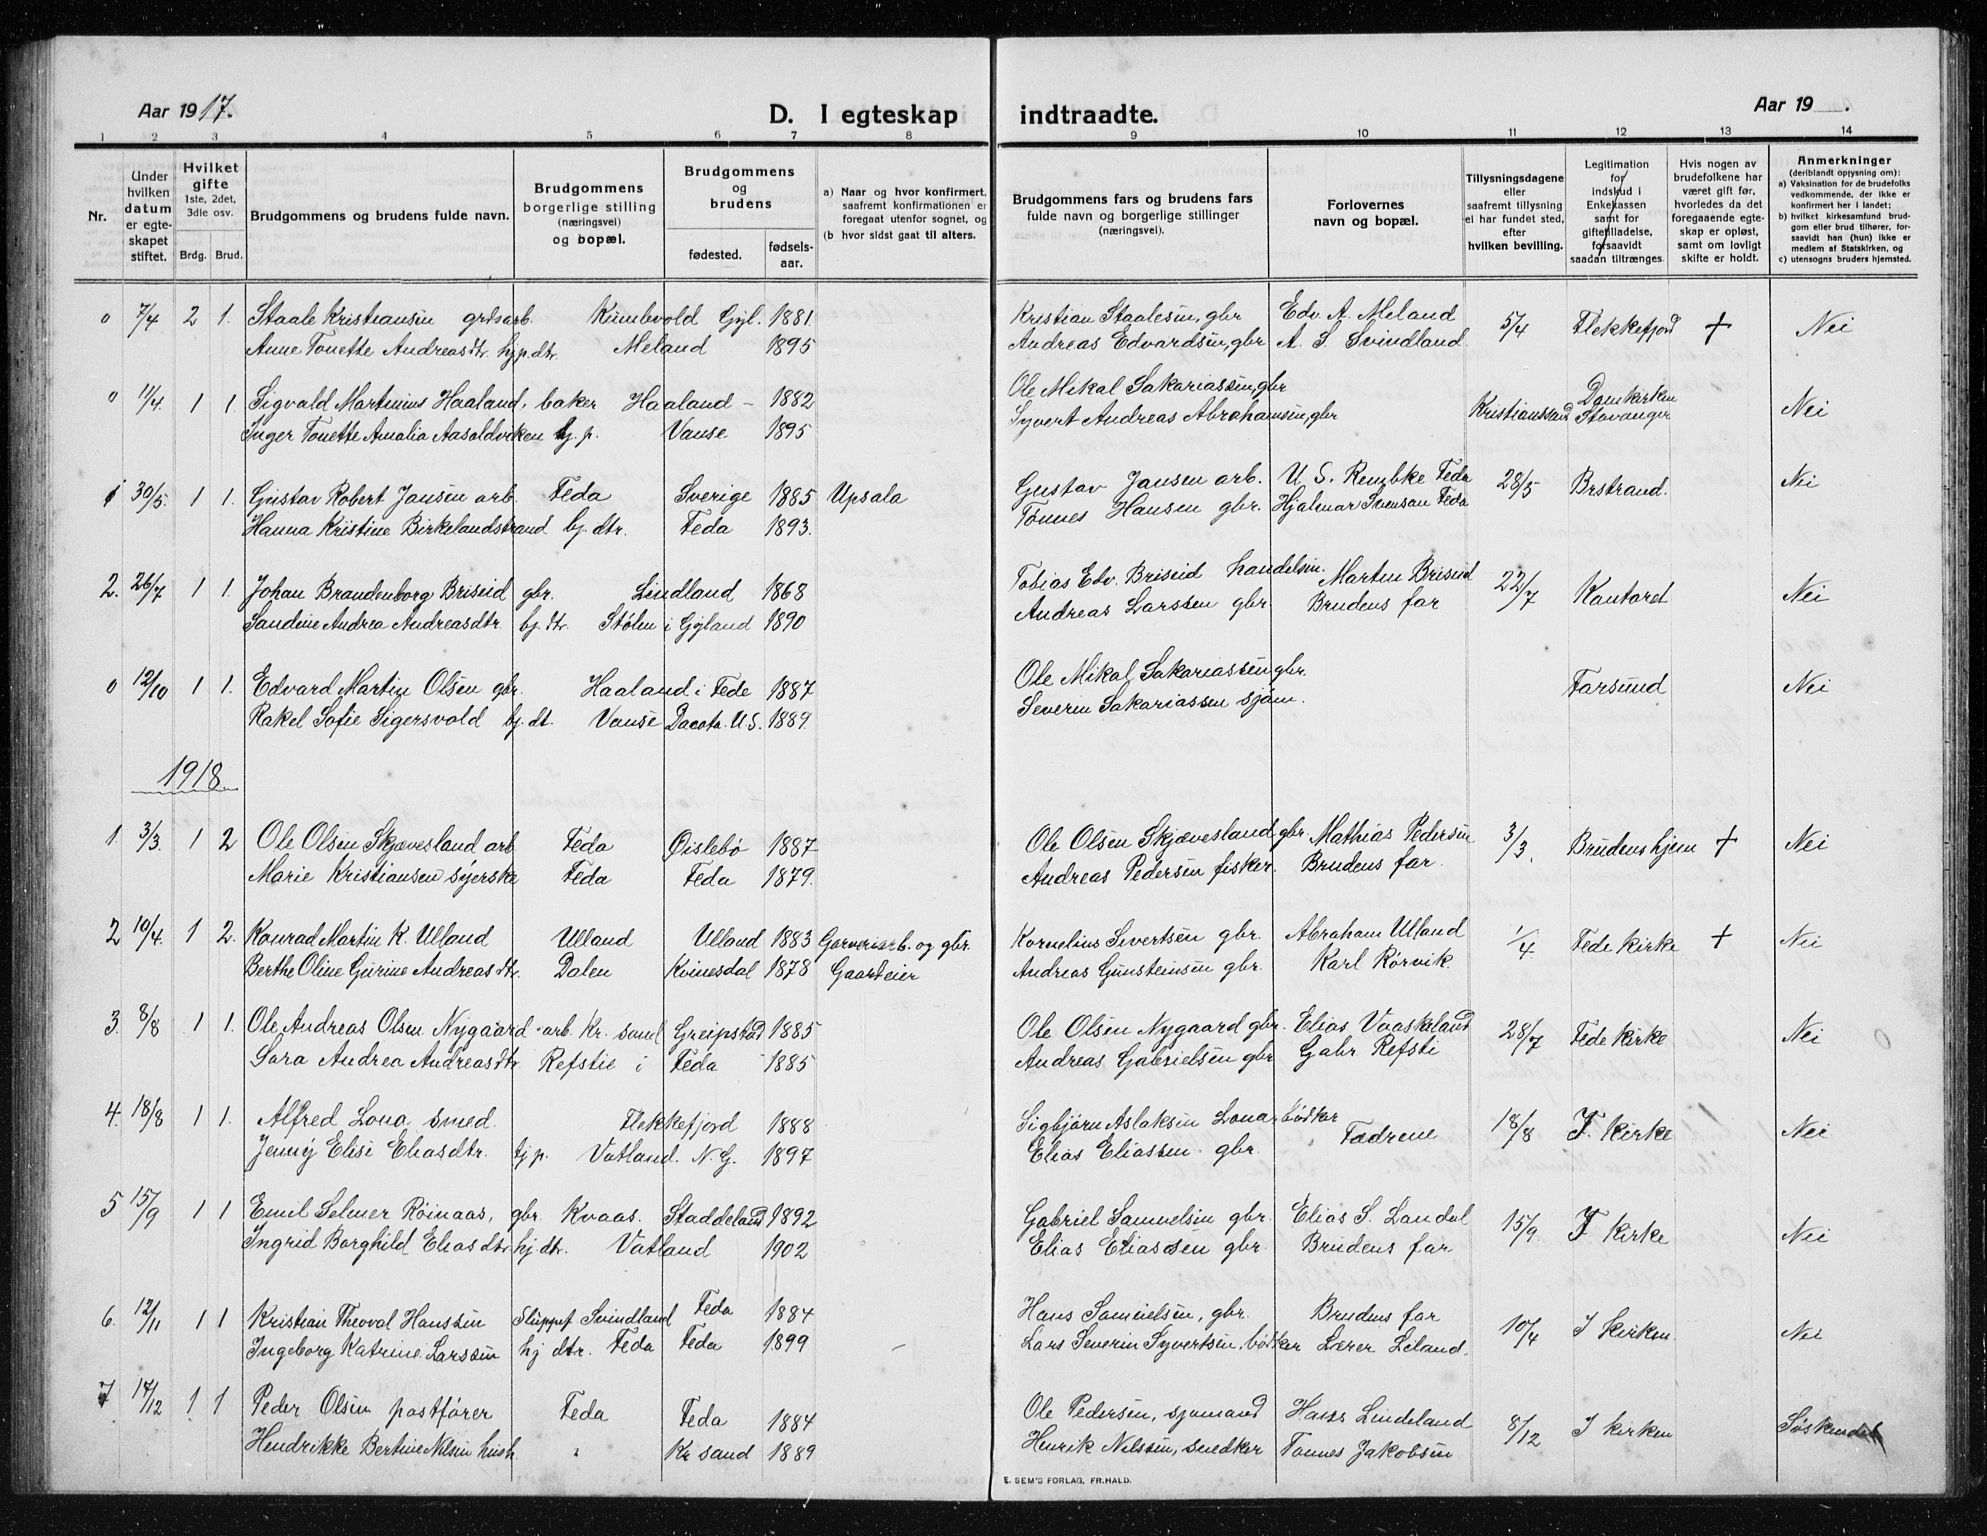 Aar 1917.
D. I egteskap indtraadte.
Aar 19 .
1 2 3 4 5 6 7 8 9 10 11 12 13 14
Nr.
Under hvilken datum er egte-skapet stiftet.
Hvilket gifte 1ste, 2det, 3die osv.
Brdg. Brud.
Brudgommens og brudens fulde navn.
Brudgommens borgerlige stilling (næringsvei) og bopæl.
Brudgommens og brudens
fødested. fødsels-aar.
a) Naar og hvor konfirmert, saafremt konfirmationen er foregaat utenfor sognet, og
(b hvor sidst gaat til alters.
Brudgommens fars og brudens fars fulde navn og borgerlige stillinger (næringsvei).
Forlovernes navn og bopæl.
Tillysningsdagene eller saafremt tillysning ei har fundet sted, efter hvilken bevilling.
Legitimation for indskud i Enkekassen samt for giftetilladelse, forsaavidt saadan tiltrænges.
Hvis nogen av brudefolkene har været gift før, hvorledes da det foregaaende egte-skap er opløst, samt om lovligt skifte er holdt.
Anmerkninger (deriblandt opjysning om):
a) Vaksination for de brudefolks vedkommende, der ikke er konfirmert her i landet;
b) hvilket kirkesamfund brud-gom eller brud tilhører, for-saavidt han (hun) ikke er medlem af Statskirken, og
c) utensogns bruders hjemsted.
0 7/4 2 1. Staale Kristiansen grdsarb. Kumlevold Gyl. 1881 Kristian Staalesen, gbr Edv. A. Meland 5/4 Flekkefjord + Nei
Anne Tonette Andreasdtr. hj.p.dtr. Meland 1895 Andreas Edvardsen, gbr A. S. Svindland.
0 11/4. 1 1. Sigvald Martinius Haaland, baker Haaland - 1882 Ole Mikal Sakariassen, gbr Kristianssand Domkirken Stavanger Nei
Inger Tonette Amalia Aasoldviken tj. p. Vanse 1895 Syvert Andreas Abrahamsen, gbr
1 30/5. 1 1. Gustav Robert Jansen arb. Feda Sverige 1885 Upsala Gustav Jansen arb. U S. Rembke Feda 28/5 Brstrand. Nei
Hanna Kristine Birkelandstrand hj. dtr. Feda 1893. Tønnes Hansen gbr. Hjalmar Svensan Feda
2. 26/7 1 1. Johan Brandenborg Briseid gbr. Lindland 1868 Tobias Edv. Briseid handelsm. Marten Briseid 22/7 Kontoret Nei
Sandine Andrea Andreasdtr. hj. dtr. Stølen i Gyland 1890 Andreas Larssen gbr. Brudens far
0 12/10 1 1. Edvard Martin Olsen gbr. Haaland i Fede 1887 Ole Mikal Sakariassen gbr. Farsund Nei
Rakel Sofie Sigersvold hj. dt. Vanse Dacota. U.S. 1889. Severin Sakariassen sjøm.
1918.
1. 3/3. 1 2 Ole Olsen Skjævesland arb Feda Øislebø 1887 Ole Olsen Skjævesland gbr. Mathias Pedersen 3/3. Brudens hjem + Nei
Marie Kristiansen syerske Feda Feda 1879. Andreas Pedersen fisker. Brudens far.
2 10/4. 1 2. Konrad Martin K. Ulland Ulland Ulland 1883 Garveriarb. og gbr. Kornelius Sivertsen gbr. Abraham Ulland 1/4 Fede kirke + Nei
Berthe Oline Gurine Andreasdtr. Dalen Kvinesdal 1878 Gaardeier Andreas Gunsteinsen gbr. Karl Rørvik.
3. 8/8 1 1. Ole Andreas Olsen Nygaard arb. Kr. sand Greipstad 1885 Ole Olsen Nygaard gbr. Elias Vaaskeland 28/7 Fede kirke Nei
Sara Andrea Andreasdtr. Refstie i Feda 1885 Andreas Gabrielsen gbr Gabr Refsti
4. 18/8 1 1. Alfred Lona smed. Flekkefjord 1888 Sigbjørn Aslaksen Lona bødker Fædrene 18/8 F. kirke Nei
Jenny Elise Eliasdtr. tj p. Vatland. N.G. 1897 Elias Eliassen gbr.
5 15/9 1 1 Emil Selmer Røinaas, gbr. Kvaas. Staddeland 1892 Gabriel Samuelsen gbr. Elias S. Landal 15/9. F kirke Nei
Ingrid Borghild Eliasdtr hj. dtr. Vatland 1902 Elias Eliassen gbr. Brudens far
6. 12/11 1 1 Kristian Theoval Hanssen Sluppef Svindland Feda 1884 Hans Samuelsen, gbr. Brudens far 10/4 I kirken Nei
Ingeborg Katrine Larssen hj dtr. Feda Feda 1899 Lars Severin Syvertsen, bødker Lærer Liland.
7 14/12 1 1 Peder Olsen postfører Feda Feda 1884 Ole Pedersen, sjømand Hans Lindeland 8/12 I kirken Søskende
Hendrikke Bertine Nilsen hush. " Kr sand 1889 Henrik Nilssen, snedker Tønnes Jakobsen
E. SEM'S FORLAG, FR.HALD.